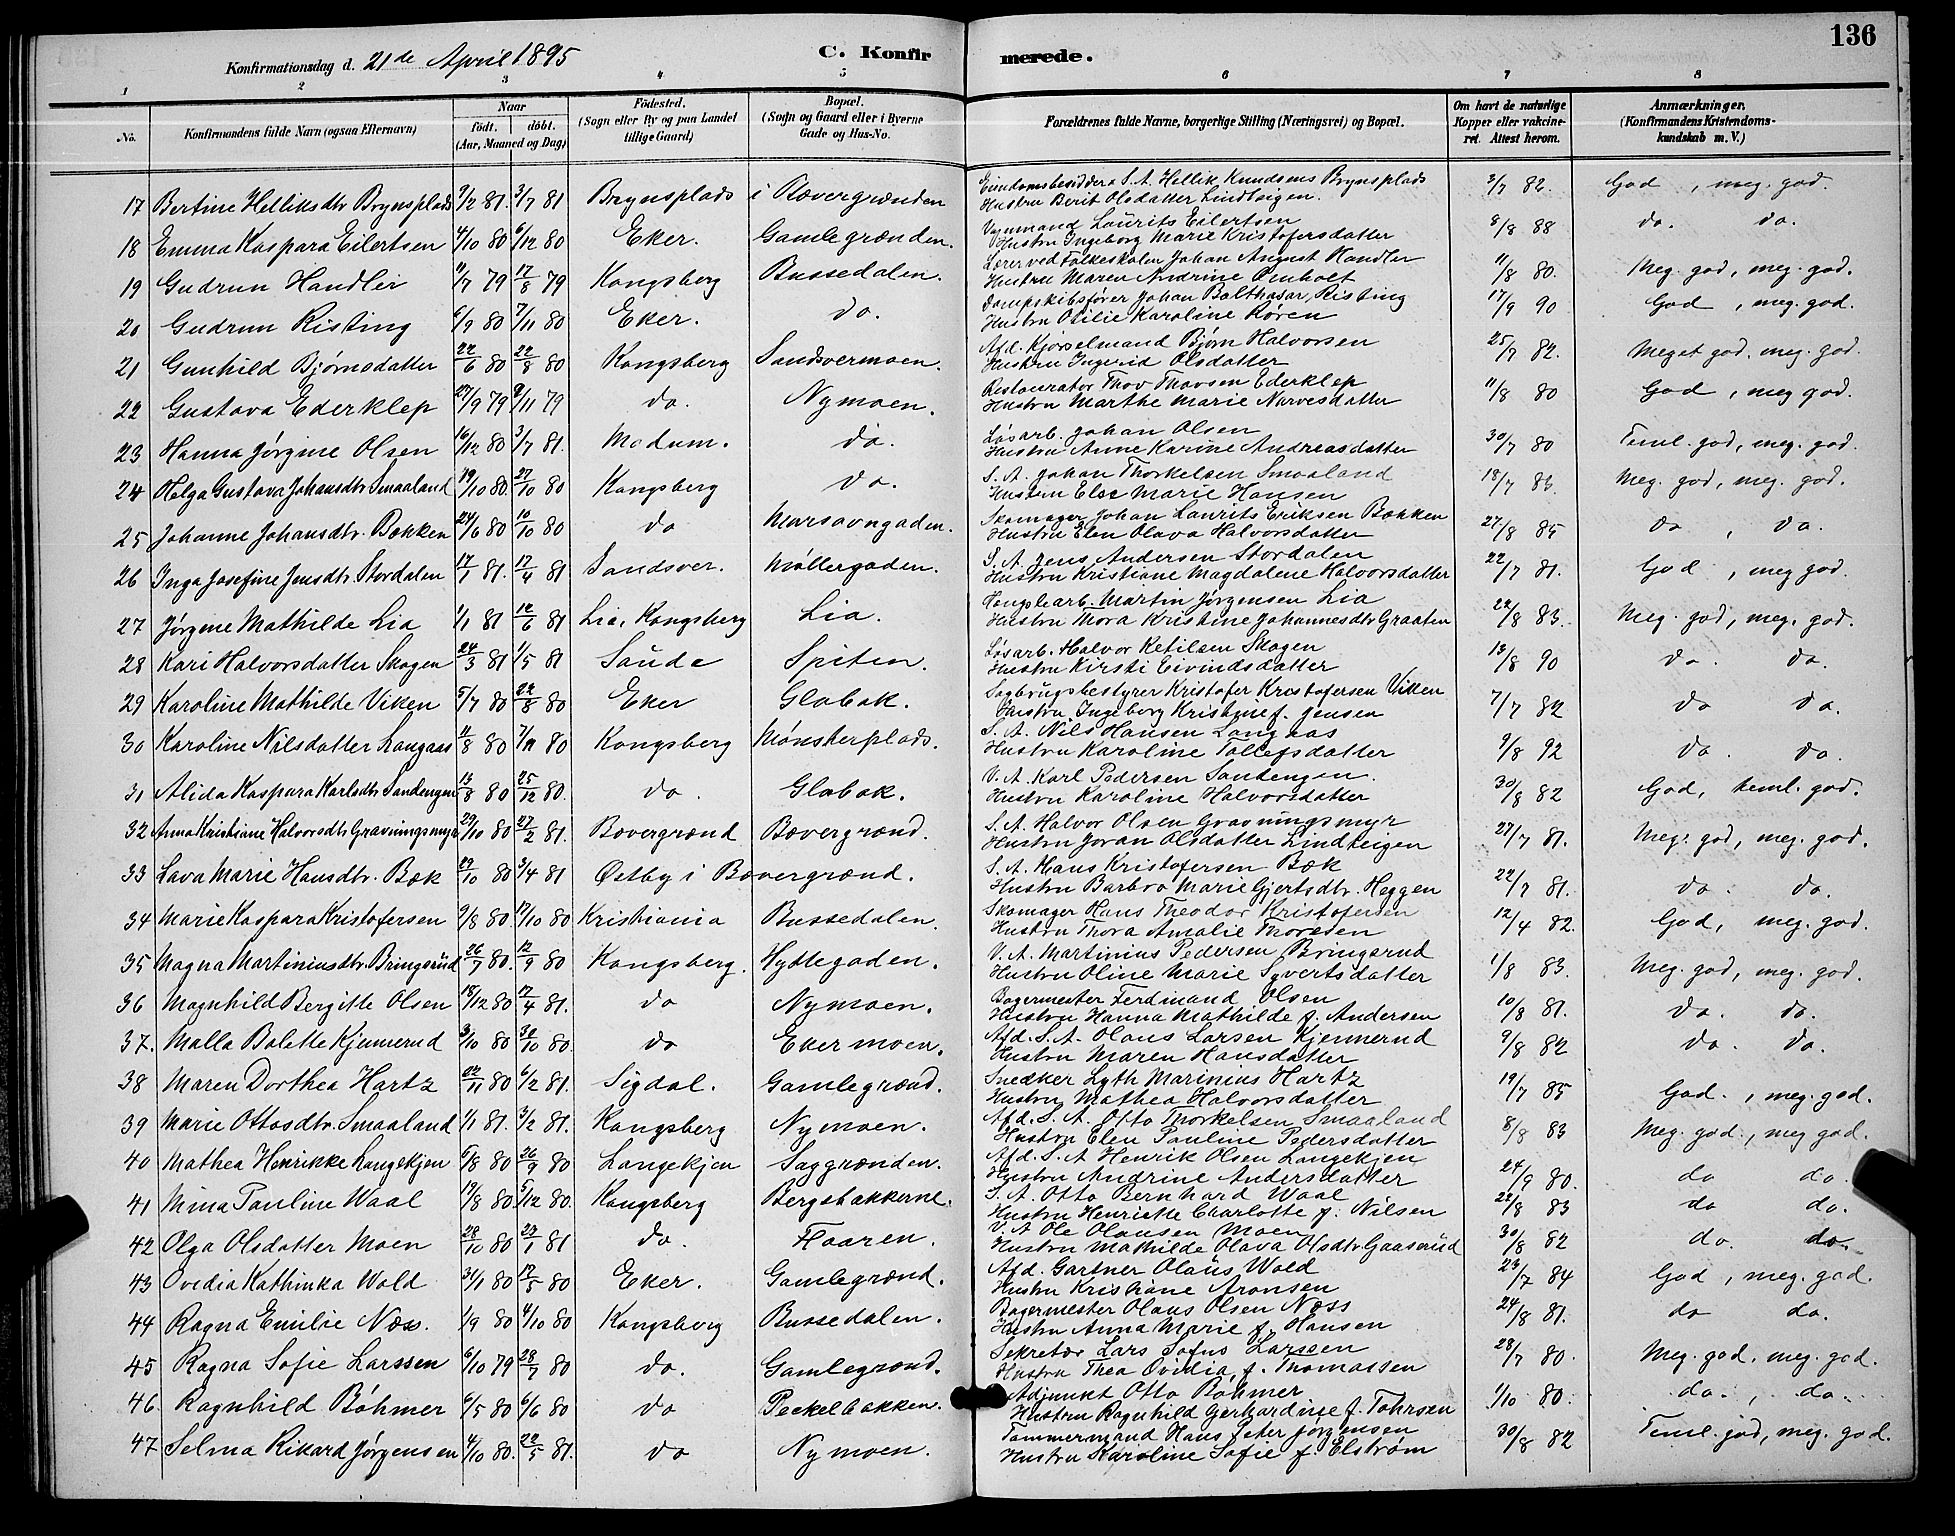 136
Konfirmationsdag d. 21de April 1895 C. Konfirmerede.
1 2 3 4 5 6 7 8
No. Konfirmandens fulde Navn (ogsaa Efternavn) Naar födt. döbt. (Aar, Maaned og Dag) Födested. (Sogn eller By og paa Landet tillige Gaard) Bopæl. (Sogn og Gaard eller i Byerne Gade og Hus-No. Forældrenes fulde Navne, borgerlige Stilling (Næringsvei) og Bopæl. Om havt de naturlige Kopper eller vakcineret. Attest herom. Anmærkninger. (Konfirmandens Kristendomskundskab m. V.)
17 Bertine Helliksdtr Brynsplads 9/2 81. 3/7 81 Brynsplads i Bævergrænden Eiendomsbesidder S. A. Hellik Knudsens Brynsplads 2/7 82. God, meg. god.
Hustru Berit Olsdatter Lindteigen.
18 Emma Kaspara Eilertsen 4/10 80 6/12 80 Eker. Gamlegrænden. Vognmand Laurits Eilertsen 8/8 88 do. do.
Hustru Ingeborg Marie Kristofersdatter
19 Gudrun Handler 11/7 79 17/8 79 Kongsberg Bussedalen. Lærer ved Folkeskolen Johan August Handler 11/8 80. Meg. god, meg. god.
Hustru Maren Andrine Omholt
20 Gudrun Risting 6/9 80 7/11 80 Eker. do. Dampskibsfører Johan Balthasar Risting 17/9 90 God, meg. god.
Hustru Otilie Karoline Køren
21 Gunhild Bjørnsdatter 22/6 80 22/8 80 Kongsberg Sandsvermoen. Afd. Kjørselmand Bjørn Halvorsen 25/7 82. Meget god, meg. god.
Hustru Ingerid Olsdatter
22 Gustava Ederklep 27/9 79 9/11 79 do. Nymoen. Restauratør Thov Thovsen Ederklep 11/8 80 God, meg god.
Hustru Marthe Marie Narvesdatter
23 Hanna Jørgine Olsen 16/12 80 3/7 81. Modum. do. Løsarb. Johan Olsen 30/7 80 Teml. god, meg. god.
Hustru Anne Karine Andreasdatter
24 Helga Gustava Johansdtr Smaaland 19/10 80. 27/10 80 Kongsberg do. S. A. Johan Thorkelsen Smaaland 18/7 83. Meg. god, meg. god.
Hustru Else Marie Hansen
25 Johanne Johansdtr. Bækken 24/6 80 10/10 80 do Morsovngaden. Skomager Johan Laurits Eriksen Bækken 27/8 85 do, do.
Hustru Elen Olava Halvorsdatter
26 Inga Josefine Jensdtr. Stordalen 17/1 81. 17/4 81 Sandsver. Møllergaden. S. A. Jens Andersen Stordalen 22/7 81. God, meg god.
Hustru Kristiane Magdalene Halvorsdatter
27 Jørgine Mathilde Lia 1/1 81 12/6 81 Lia, Kongsberg Lia. Martin Jørgensen Lia 22/8 83. Meg. god, meg. god.
Hustru Thora Kristine Johannesdtr Graaten
28 Kari Halvorsdatter Skogen 24/3 81 1/5 81 Saude Spiten. Løsarb. Halvor Ketilsen Skogen 13/8 90 do. do.
Hustru Kirsti Eivindsdatter
29 Karoline Mathilde Viken 5/7 80 22/8 80 Eker Glabak. Sagbrugsbestyrer Kristofer Kristofersen Viken 7/7 82 do do.
Hustru Ingeborg Kristine f. Jensen
30 Karoline Nilsdatter Langaas 11/8 80 7/11 80 Kongsberg Mønsterplads. S. A. Nils Hansen Langaas 9/8 92 do. do.
Hustru Karoline Tollefsdatter
31 Alida Kaspara Karlsdtr Sandengen 13/8 80 25/12 80. do. Glabak. V. A. Karl Pedersen Sandengen. 30/8 82 God, teml. god.
Hustru Karoline Halvorsdatter
32 Anna Kristiane Halvorsdtr Gravningsmyr 29/10 80 27/2 81. Bævergrænd Bævergrænd. S. A. Halvor Olsen Gravningsmyr 27/7 81. Meg. god, meg. god.
Hustru Joran Olsdatter Lindteigen
33 Lava Marie Hansdtr. Bæk 29/10 80 3/4 81 Østby i Bævergrænd. S. A. Hans Kristofersen Bæk 22/7 81. do. do.
Hustru Barbro Marie Gjertsdtr. Heggen
34 Marie Kaspara Kristofersen 9/8 80. 17/10 80 Kristiania Bussedalen. Skomager Hans Theodor Kristofersen 12/4 82. God, meg. god.
Hustru Thora Amalie Thoresen
35 Magna Martiniusdtr. Bringsrud 26/7 80. 12/9 80 Kongsberg. Hyttegaden. V. A. Martinius Pedersen Bringsrud 1/8 83. Meg. god, meg. god.
Hustru Oline Marie Syvertsdatter
36 Magnhild Bergitte Olsen 18/12 80 17/4 81. do Nymoen. Bagermester Ferdinand Olsen 10/8 81. do. do.
Hustru Hanna Mathilde f. Andersen
37. Malla Bolette Kjennerud 3/10 80 30/10 80. do Ekermoen. Afd. S. A. Olaus Larsen Kjennerud 9/8 82 do. do.
Hustru Maren Hansdatter
38 Maren Dorthea Hartz 22/11 80 6/2 81. Sigdal. Gamlegrænd. Snedker Lyth Marinius Hartz 19/7 85 God., meg. god.
Hustru Mathea Halvorsdatter
39 Marie Ottosdtr. Smaaland 1/1 81. 3/2 81. Kongsberg Nymoen. Afd. S. A. Otto Thorkelsen Smaaland 8/8 83 Meg. god., meg god.
Hustru Elen Pauline Pedersdatter
40 Mathea Henrikke Langekjen 6/8 80 26/9 80 Langekjen Saggrænden. Afd. S. A Henrik Olsen Langekjen 24/9 80. do do.
Hustru Andrine Andersdatter
41 Mina Pauline Waal 19/8 80 5/12 80. Kongsberg Bergsbakkerne. S. A. Otto Bernhard Waal 22/8 83 do do.
Hustru Henriette Charlotte f. Nilsen
42 Olga Olsdatter Moen 28/10 80 23/1 81 do. Haaren. V. A Ole Olausen Moen 30/8 82 do. do.
Hustru Mathilde Olava Olsdtr. Gaasrud
43 Ovidia Kathinka Wold 31/1 80 17/5 80 Eker. Gamlegrænd. Afd. Gartner Olaus Wold 23/7 84 God, meg. god.
Hustru Kristiane Aronsen
44 Ragna Emilie Næss. 1/9 80 4/10 80 Kongsberg Bussedalen. Bagermester Olaus Olsen Næss 24/8 81. do do.
Hustru Anna Marie f. Hansen
45 Ragna Sofie Larssen 6/10 79 28/7 80 do. Gamlegrænd. Sekretær Lars Sofus Larssen 28/7 80. Meg. god, meg. god.
Hustru Thea Ovidia, f. Thomassen
46. Ragnhild Bøhmer 6/5 80 6/6 80 do Peckelbakken. Adjunkt Otto Bøhmer 1/10 80. do., do.
Hustru Ragnhild Gerhardine f. Fahrsen
47 Selma Rikard Jørgensen 4/10 80. 22/5 81. do Nymoen. Tømmermand Hans Peter Jørgensen 30/8 82 Teml. god, meg. god.
Hustru Karoline Sofie f. Elstrøm